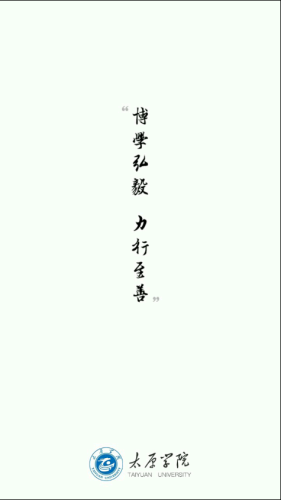 “博學弘毅 力行至善”
太原学院
TAIYUAN UNIVERSITY